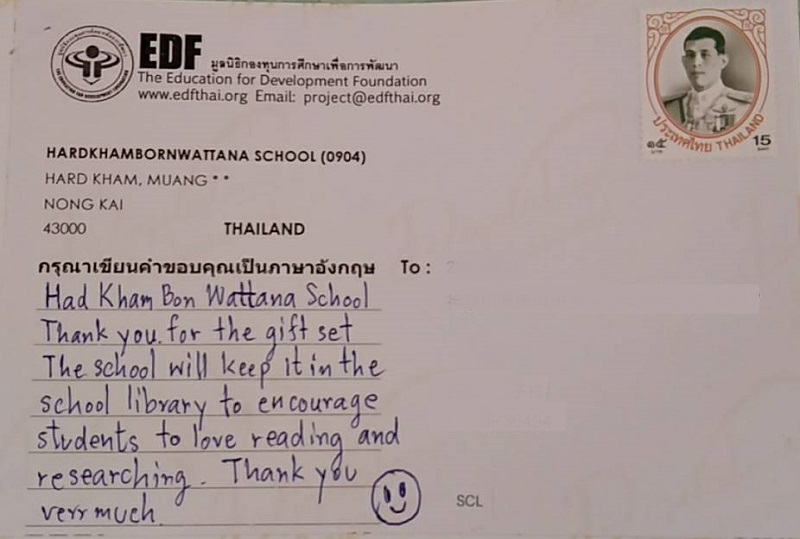 EDF มูลนิธิกองทุนการศึกษาเพื่อการพัฒนา
The Education for Development Foundation
www.edfthai.org Email: project@edfthai.org
ประเทศไทย THAILAND
๑๕ บาท 15 BAHT
HARDKHAMBORNWATTANA SCHOOL (0904)
HARD KHAM, MUANG * *
NONG KAI
43000 THAILAND
กรุณาเขียนคำขอบคุณเป็นภาษาอังกฤษ To :
Had Kham Bon Wattana School
Thank you for the gift set
The school will keep it in the
school library to encourage
students to love reading and
researching. Thank you
verr much
SCL